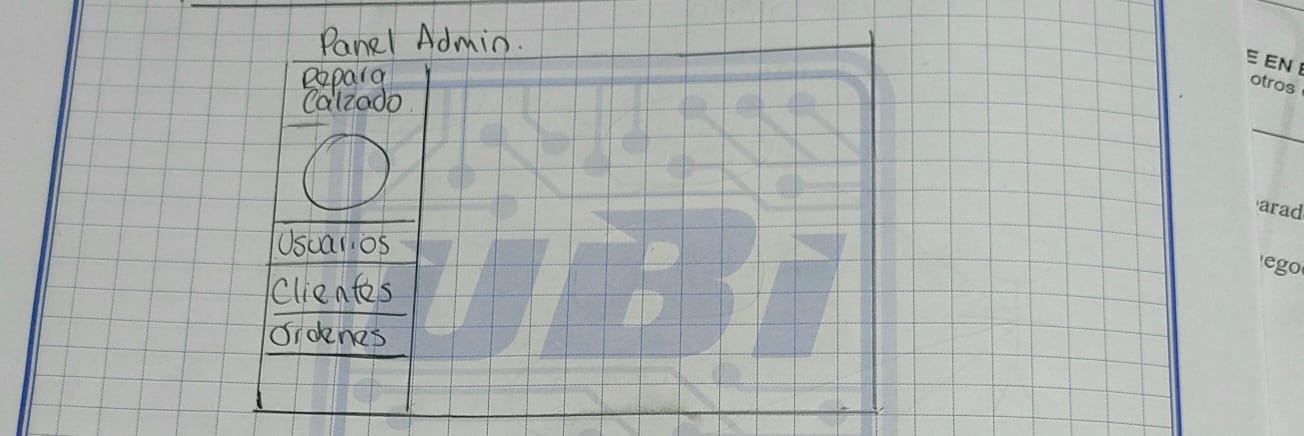 Panel Admin.
Repara
Calzado.
Usuarios
Clientes
Ordenes
UBi
E EN E
otros
arad
ego